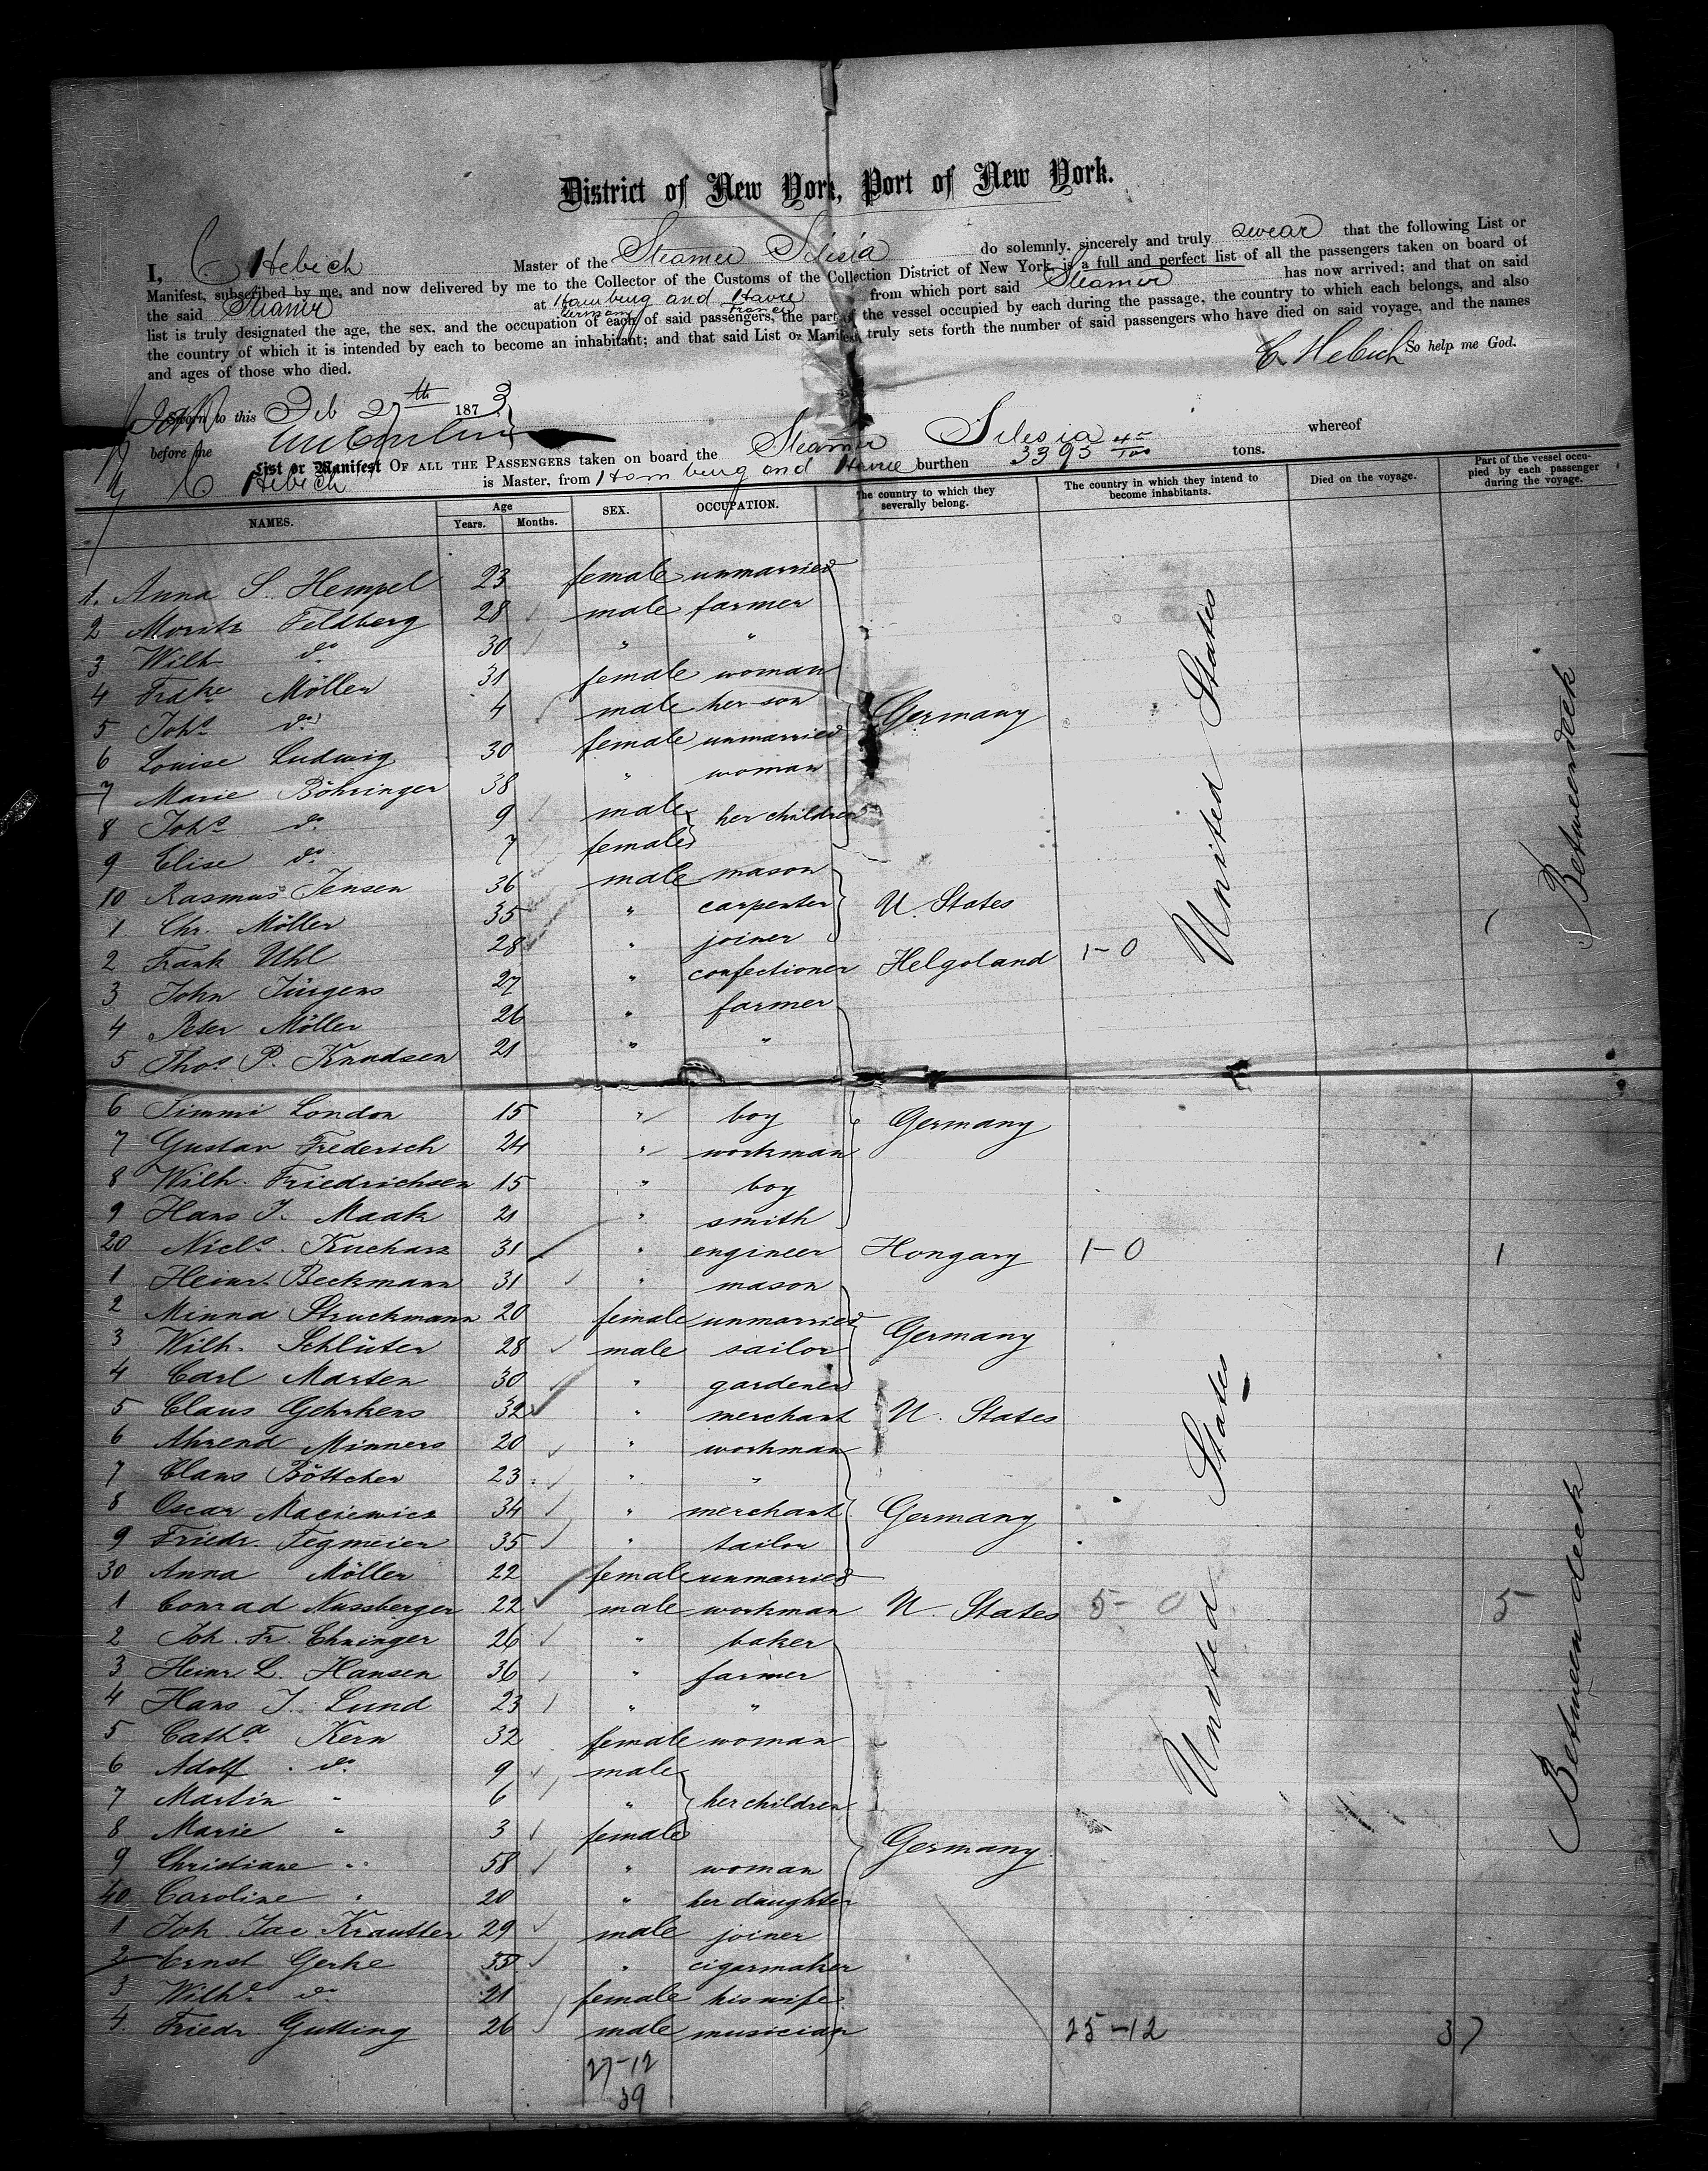 District of New York, Port of New York.
I, C. Hebich Master of the Steamer Silesia do solemnly, sincerely and truly swear that the following List or
Manifest, subscribed by me, and now delivered by me to the Collector of the Customs of the Collection District of New York, is a full and perfect list of all the passengers taken on board of
the said Steamer at Hamburg and Havre from which port said Steamer has now arrived; and that on said
Germany France
list is truly designated the age, the sex, and the occupation of each of said passengers, the part of the vessel occupied by each during the passage, the country to which each belongs, and also
the country of which it is intended by each to become an inhabitant; and that said List or Manifest truly sets forth the number of said passengers who have died on said voyage, and the names
and ages of those who died.
C. Hebich So help me God.
Sworn to this Feb 27th 1873
before me
List or Manifest OF ALL THE PASSENGERS taken on board the Steamer Silesia whereof
C Hebich is Master, from Hamburg and Havre burthen 3395 45/100 tons.
NAMES. Age Years. Months. SEX. OCCUPATION. The country to which they severally belong. The country in which they intend to become inhabitants. Died on the voyage. Part of the vessel occupied by each passenger during the voyage.
1. Anna S. Hempel 23 female unmarried
2 Moritz Feldberg 28 male farmer
3 Wilh do. 30 " "
4 Fradke Möller 31 female woman
5 Johs do. 4 male her son Germany
6 Louise Ludwig 30 female unmarried
7 Marie Böhringer 38 " woman
8 Johs do. 9 male her children
9 Elise do. 7 female
10 Rasmus Jensen 36 male mason
1 Chr. Möller 35 " carpenter U. States
2 Frank Uhl 28 " joiner
3 John Jürgens 27 " confectioner Helgoland 1-0 1
4 Peter Möller 26 " farmer
5 Thos P. Knudsen 21 " "
United States
Betweendeck
6 Jimmi London 15 " boy Germany
7 Gustav Frederich 24 " workman
8 Wilh. Friedrichsen 15 " boy
9 Hans J. Maak 21 " smith
20 Nicls. Kucharz 31 " engineer Hongary 1-0 1
1 Heinr. Beckmann 31 " mason
2 Minna Struckmann 20 female unmarried Germany
3 Wilh. Schlüter 28 male sailor
4 Carl Marten 30 " gardener
5 Claus Gehrkens 32 " merchant U. States
6 Ahrend Minners 20 " workman
7 Claus Böttcher 23 " "
8 Oscar Maciewicz 34 " merchant Germany
9 Friedr. Tegmeier 35 " tailor
30 Anna Möller 22 female unmarried
1 Conrad Nussberger 22 male workman U. States 5-0 5
2 Joh. Fr. Ehninger 26 " baker
3 Heinr L. Hansen 36 " farmer
4 Hans J. Lund 23 " "
5 Catha. Kern 32 female woman
6 Adolf do. 9 male
7 Martin " 6 " her children
8 Marie " 3 female
9 Christiane " 58 " woman Germany
40 Caroline " 20 " her daughter
1 Joh. Jac. Krautter 29 male joiner
2 Ernst Gerke 55 " cigarmaker
3 Wilhe. do. 21 female his wife
4. Friedr. Gutting 26 male musician
United States
Betweendeck
25-12 37
27-12
39